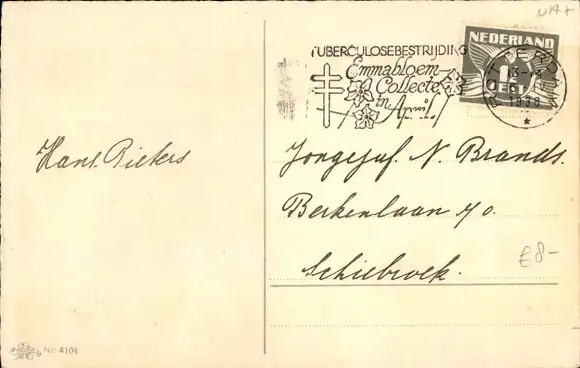 TUBERCULOSEBESTRIJDING
Emmabloem
Collecte
in April
NEDERLAND
1½
CENT
ROTTERDAM
1938
Hans. Pieters
Jongejuf. N. Brands.
Berkenlaan 70.
Schiebroek.
€8-
Nr. 4104